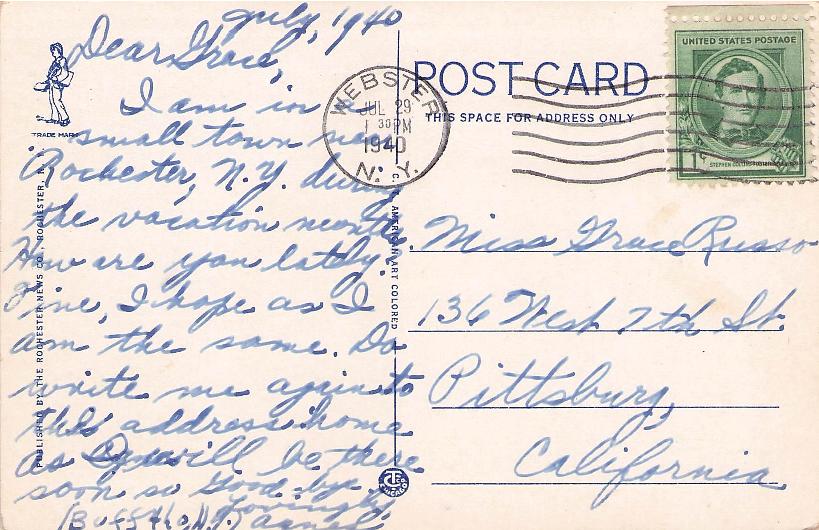 July, 1940
Dear Grace,
I am in a
small town near
Rochester, N.Y. during
the vacation months.
How are you lately.
Fine, I hope as I
am the same. Do
write me again to
this address home
as I will be there
soon so Good-bye.
Lovingly
(Buffalo, N.Y.)
TRADE MARK
PUBLISHED BY THE ROCHESTER NEWS CO., ROCHESTER, N.
AMERICAN ART COLORED
CHICAGO
WEBSTER
JUL 29
1 30 PM
1940
N. Y.
POST CARD
THIS SPACE FOR ADDRESS ONLY
UNITED STATES POSTAGE
1¢
STEPHEN COLLINS FOSTER
Miss Grace Russo
136 West 7th St.
Pittsburg,
California